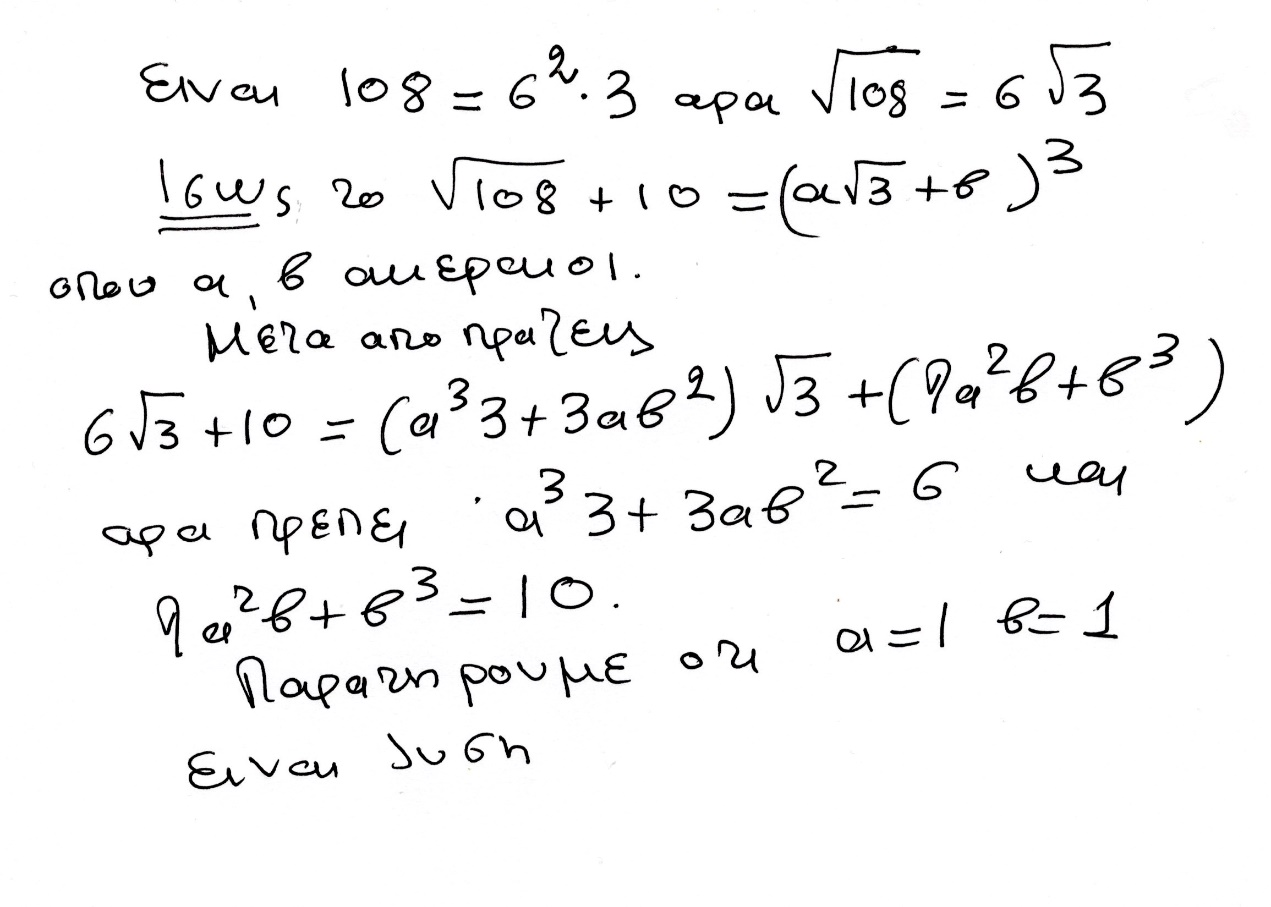 Ειναι 108 = 6².3 αρα √108 = 6√3
Ισως το √108 + 10 = (α√3 + β)³
οπου α, β ακεραιοι.
Μετα απο πραξεις
6√3 + 10 = (α³3 + 3αβ²)√3 + (9α²β + β³)
αρα πρεπει α³3 + 3αβ² = 6 και
9α²β + β³ = 10.
Παρατηρουμε οτι α = 1 β = 1
ειναι λυση